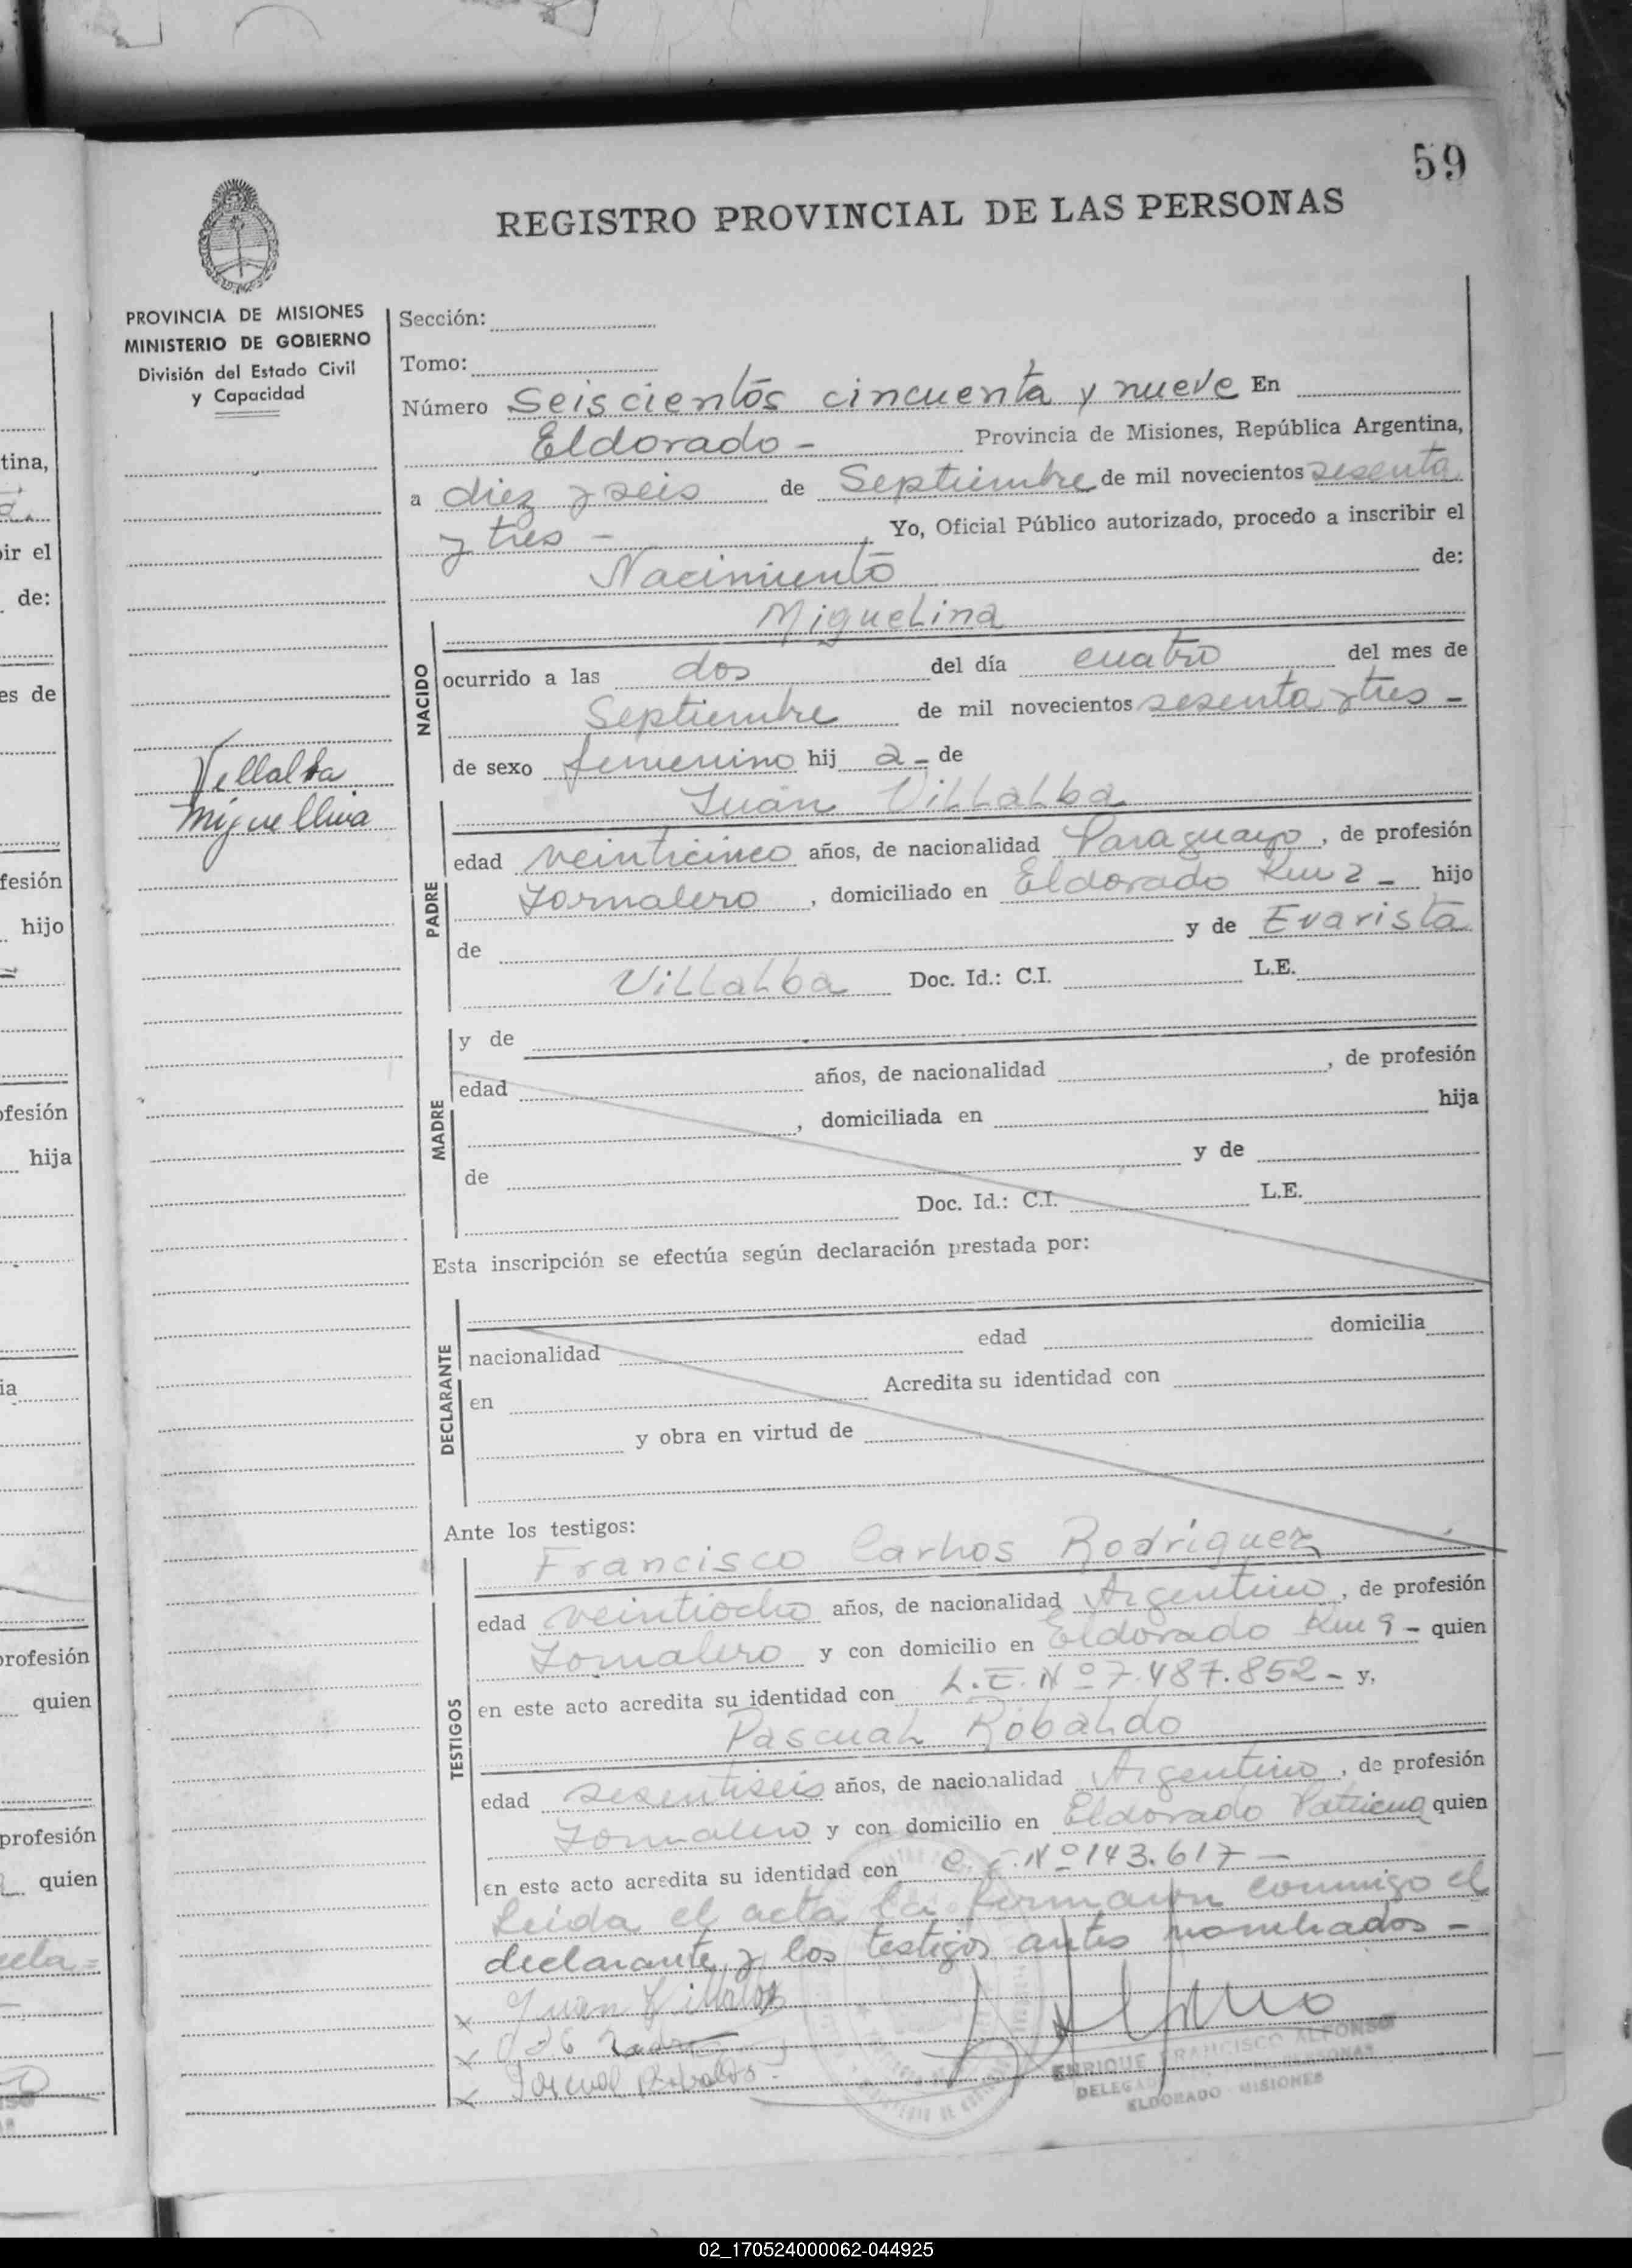 59
REGISTRO PROVINCIAL DE LAS PERSONAS
PROVINCIA DE MISIONES
MINISTERIO DE GOBIERNO
División del Estado Civil
y Capacidad
Villalba
Miguelina
Sección:
Tomo:
Número Seiscientos cincuenta y nueve En
Eldorado - Provincia de Misiones, República Argentina,
a diez y seis de Septiembre de mil novecientos sesenta
y tres - Yo, Oficial Público autorizado, procedo a inscribir el
Nacimiento de:
NACIDO
Miguelina
ocurrido a las dos del día cuatro del mes de
Septiembre de mil novecientos sesenta y tres -
de sexo femenino hij a - de
PADRE
Juan Villalba
edad veinticinco años, de nacionalidad Paraguayo, de profesión
Jornalero, domiciliado en Eldorado Km 2 - hijo
de y de Evarista
Villalba Doc. Id.: C.I. L.E.
MADRE
y de
edad años, de nacionalidad , de profesión
, domiciliada en hija
de y de
Doc. Id.: C.I. L.E.
Esta inscripción se efectúa según declaración prestada por:
DECLARANTE
nacionalidad edad domicilia
en Acredita su identidad con
y obra en virtud de
Ante los testigos:
TESTIGOS
Francisco Carlos Rodriguez
edad veintiocho años, de nacionalidad Argentino, de profesión
Jornalero y con domicilio en Eldorado Km 9 - quien
en este acto acredita su identidad con L.E. Nº 7.487.852 - y,
Pascual Robaldo
edad sesentiseis años, de nacionalidad Argentino, de profesión
Jornalero y con domicilio en Eldorado quien
en este acto acredita su identidad con Nº 143.617 -
Leida el acta la firmaron conmigo el
declarante y los testigos antes nombrados -
x Juan Villalba
x
x Pascual Robaldo
ENRIQUE FRANCISCO ALFONSO
ELDORADO - MISIONES
tina,
ir el
de:
es de
fesión
hijo
ofesión
hija
ia
profesión
quien
profesión
quien
02_170524000062-044925